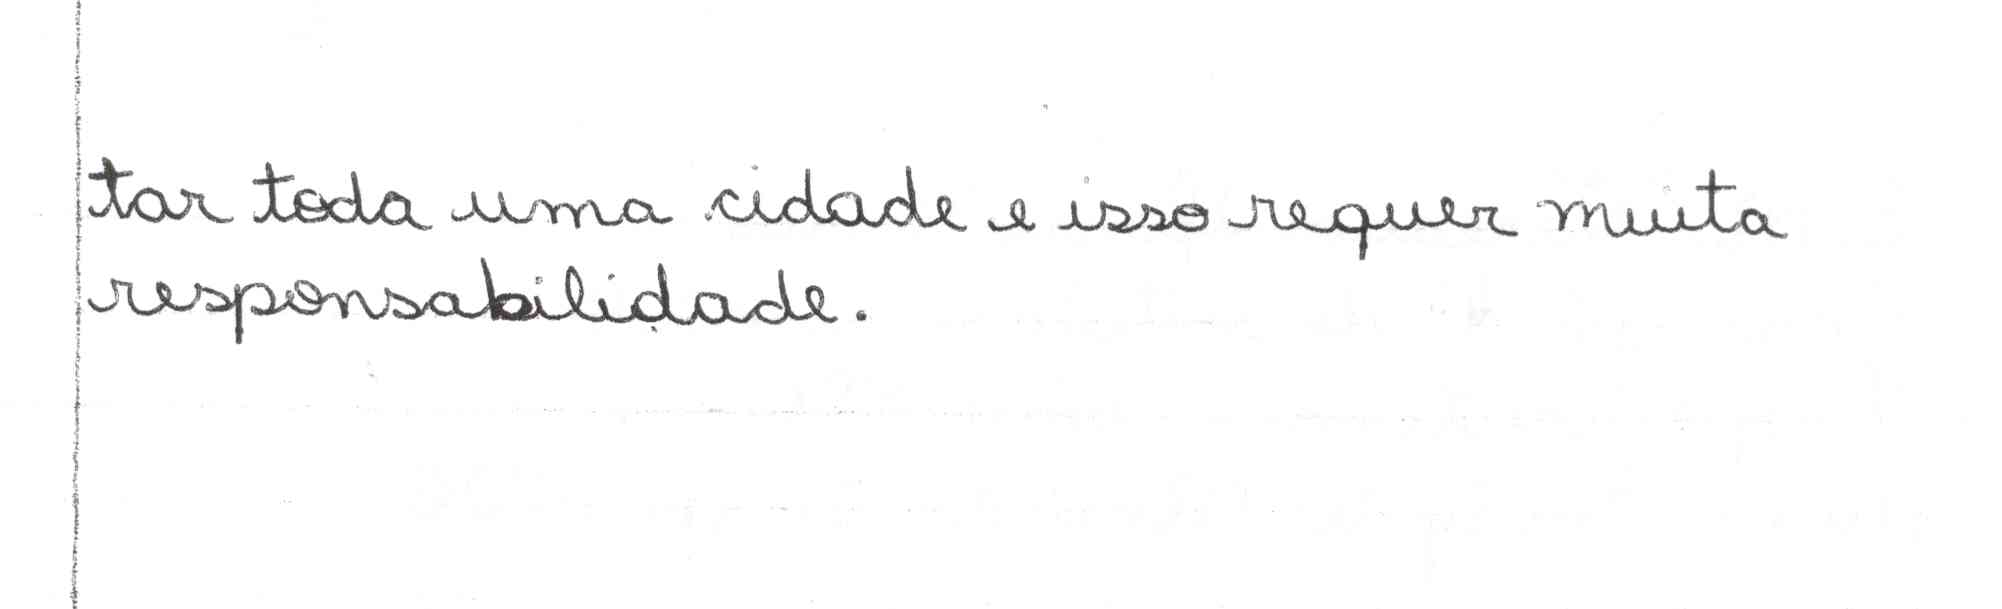 tar toda uma cidade e isso requer muita
responsabilidade.